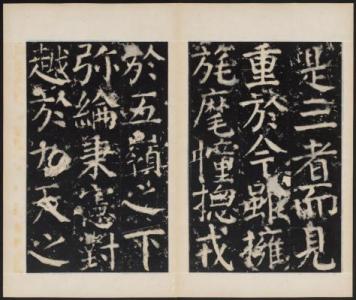 是三者而見
重於今雖擁
旄麾幢摠戎
於五嶺之下
弥綸秉憲對
越於九天之